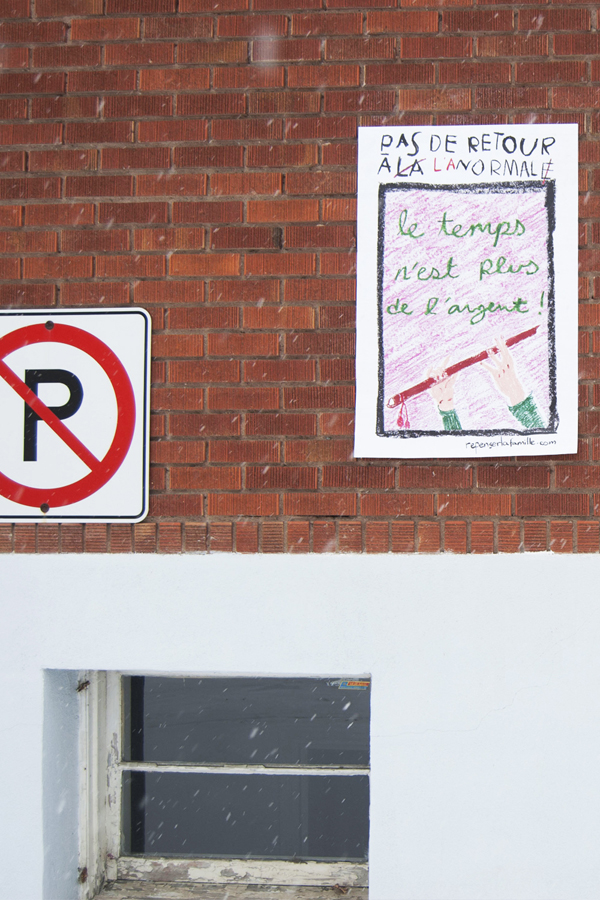 PAS DE RETOUR
À LA L'ANORMALE
le temps
n'est plus
de l'argent !
repenserlafamille.com
P